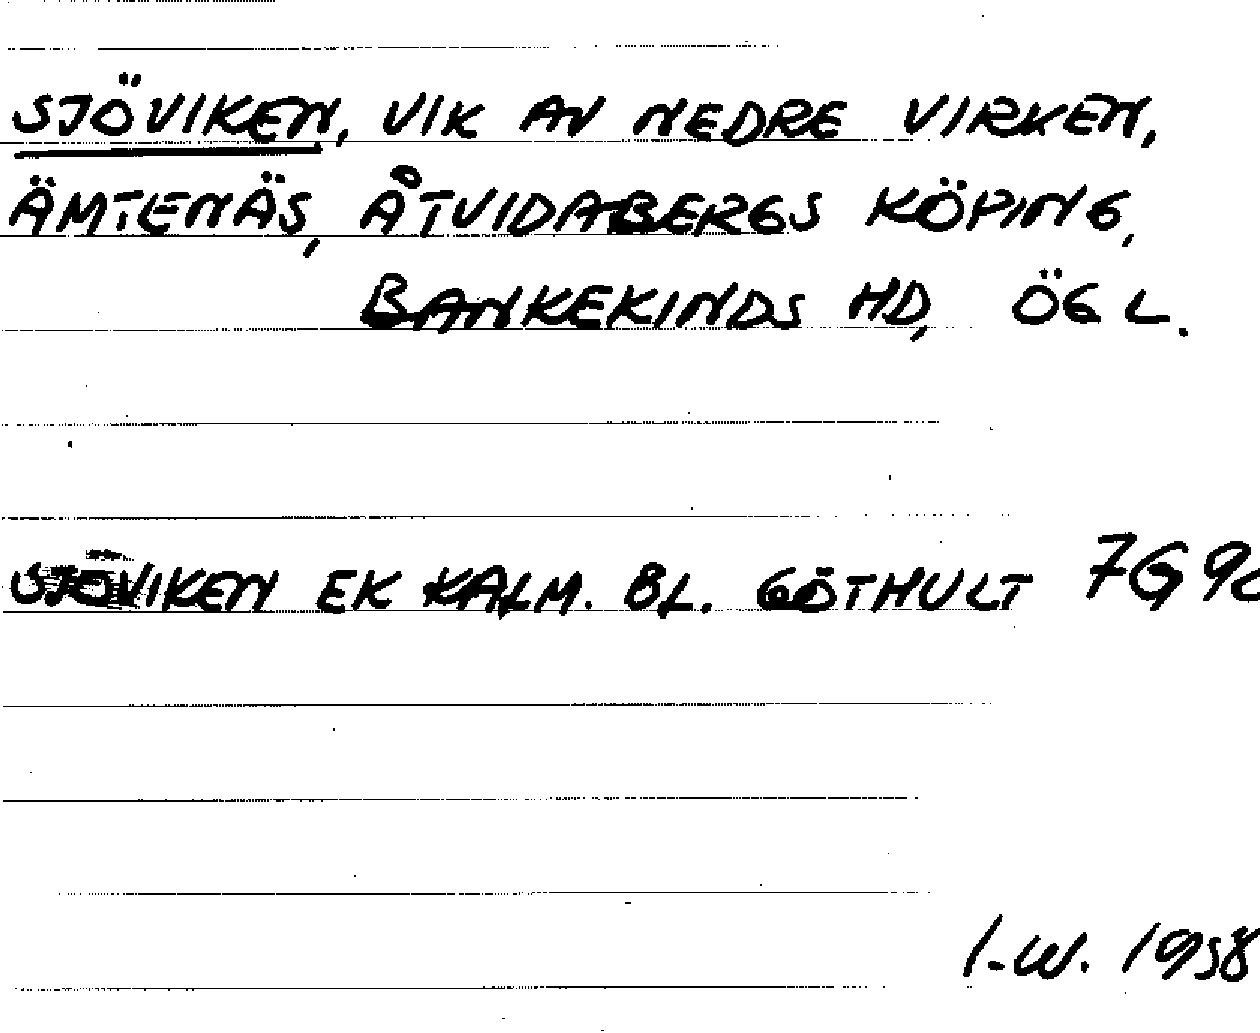 SJÖVIKEN, VIK AV NEDRE VIRKEN,
ÄMTENÄS, ÅTVIDABERGS KÖPING,
BANKEKINDS HD, ÖGL.
SJÖVIKEN EK KALM. BL. GÖTHULT 7G
I.W. 1958